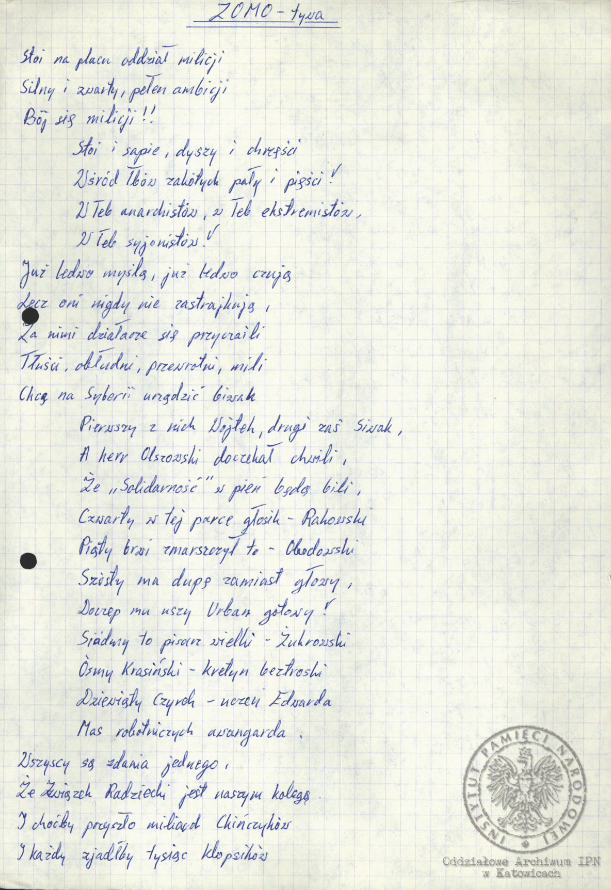 ZOMO - tywa
Stoi na placu oddział milicji
Silny i zwarty, pełen ambicji
Bój się milicji!!
Stoi i sapie, dyszy i chrzęści
Wśród łbów zakółych pały i pięści!
W łeb anarchistów, w łeb ekstremistów,
W łeb syjonistów!
Już ledwo myślą, już ledwo czują
Lecz oni nigdy nie zastrajkują,
Za nimi działacze się przyczaili
Tłuści, obłudni, przewrotni, mili
Chcą na Syberii urządzić biwak
Pierwszy z nich Wojtek, drugi zaś Siwak,
A herr Olszowski doczekał chwili,
Że „Solidarność" w pień będą bili,
Czwarty w tej parce głosik - Rakowski
Piąty brwi zmarszczył to - Obodowski
Szósty ma dupę zamiast głowy,
Doczep mu uszy Urban gotowy!
Siódmy to pisarz wielki - Żukrowski
Ósmy Krasiński - kretyn beztroski
Dziewiąty Czyrek - uczeń Edwarda
Mas robotniczych awangarda.
Wszyscy są zdania jednego,
Że Związek Radziecki jest naszym kolegą.
I choćby przyszło miliard Chińczyków
I każdy zjadłby tysiąc klopsików
INSTYTUT PAMIĘCI NARODOWEJ
Oddziałowe Archiwum IPN
w Katowicach